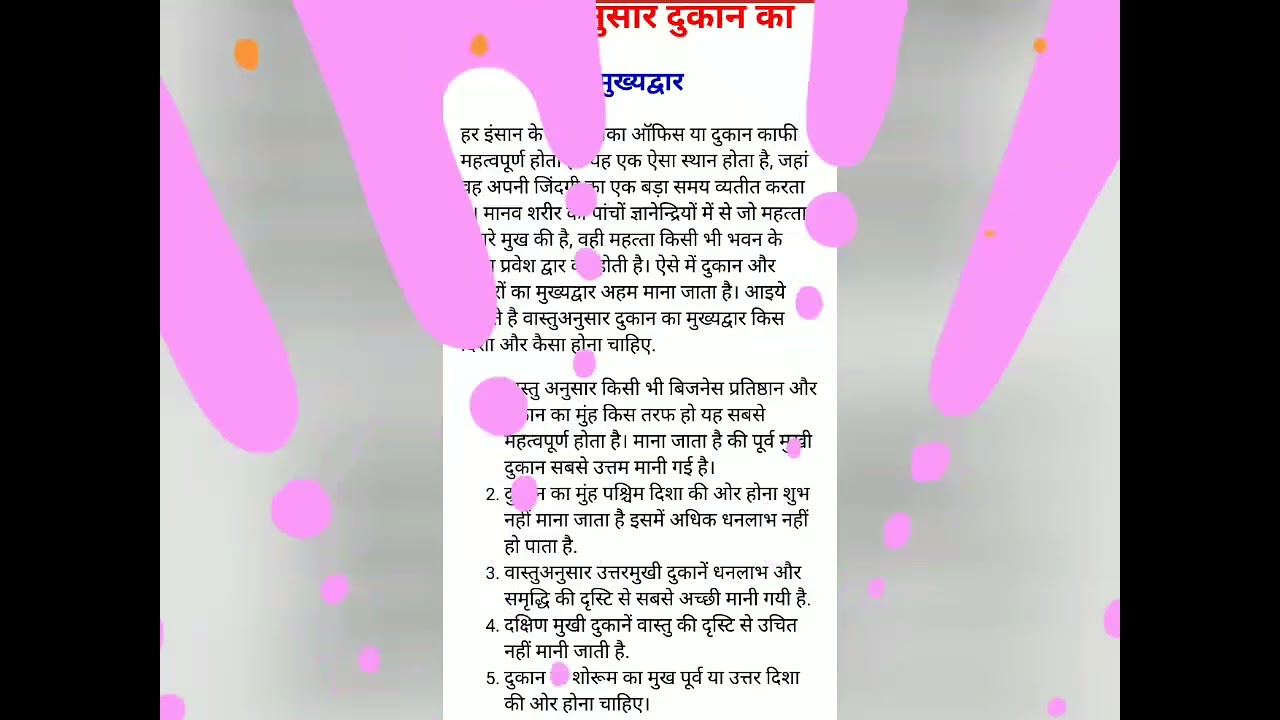 दुकान का
मुख्यद्वार
हर इंसान के का ऑफिस या दुकान काफी
महत्वपूर्ण होता यह एक ऐसा स्थान होता है, जहां
वह अपनी जिंदगी का एक बड़ा समय व्यतीत करता
। मानव शरीर पांचों ज्ञानेन्द्रियों में से जो महत्ता
मुख की है, वही महत्ता किसी भी भवन के
प्रवेश द्वार होती है। ऐसे में दुकान और
का मुख्यद्वार अहम माना जाता है। आइये
है वास्तुअनुसार दुकान का मुख्यद्वार किस
दिशा और कैसा होना चाहिए.
अनुसार किसी भी बिजनेस प्रतिष्ठान और
का मुंह किस तरफ हो यह सबसे
महत्वपूर्ण होता है। माना जाता है की पूर्व मुखी
दुकान सबसे उत्तम मानी गई है।
2. दुकान का मुंह पश्चिम दिशा की ओर होना शुभ
नहीं माना जाता है इसमें अधिक धनलाभ नहीं
हो पाता है.
3. वास्तुअनुसार उत्तरमुखी दुकानें धनलाभ और
समृद्धि की दृस्टि से सबसे अच्छी मानी गयी है.
4. दक्षिण मुखी दुकानें वास्तु की दृस्टि से उचित
नहीं मानी जाती है.
5. दुकान शोरूम का मुख पूर्व या उत्तर दिशा
की ओर होना चाहिए।